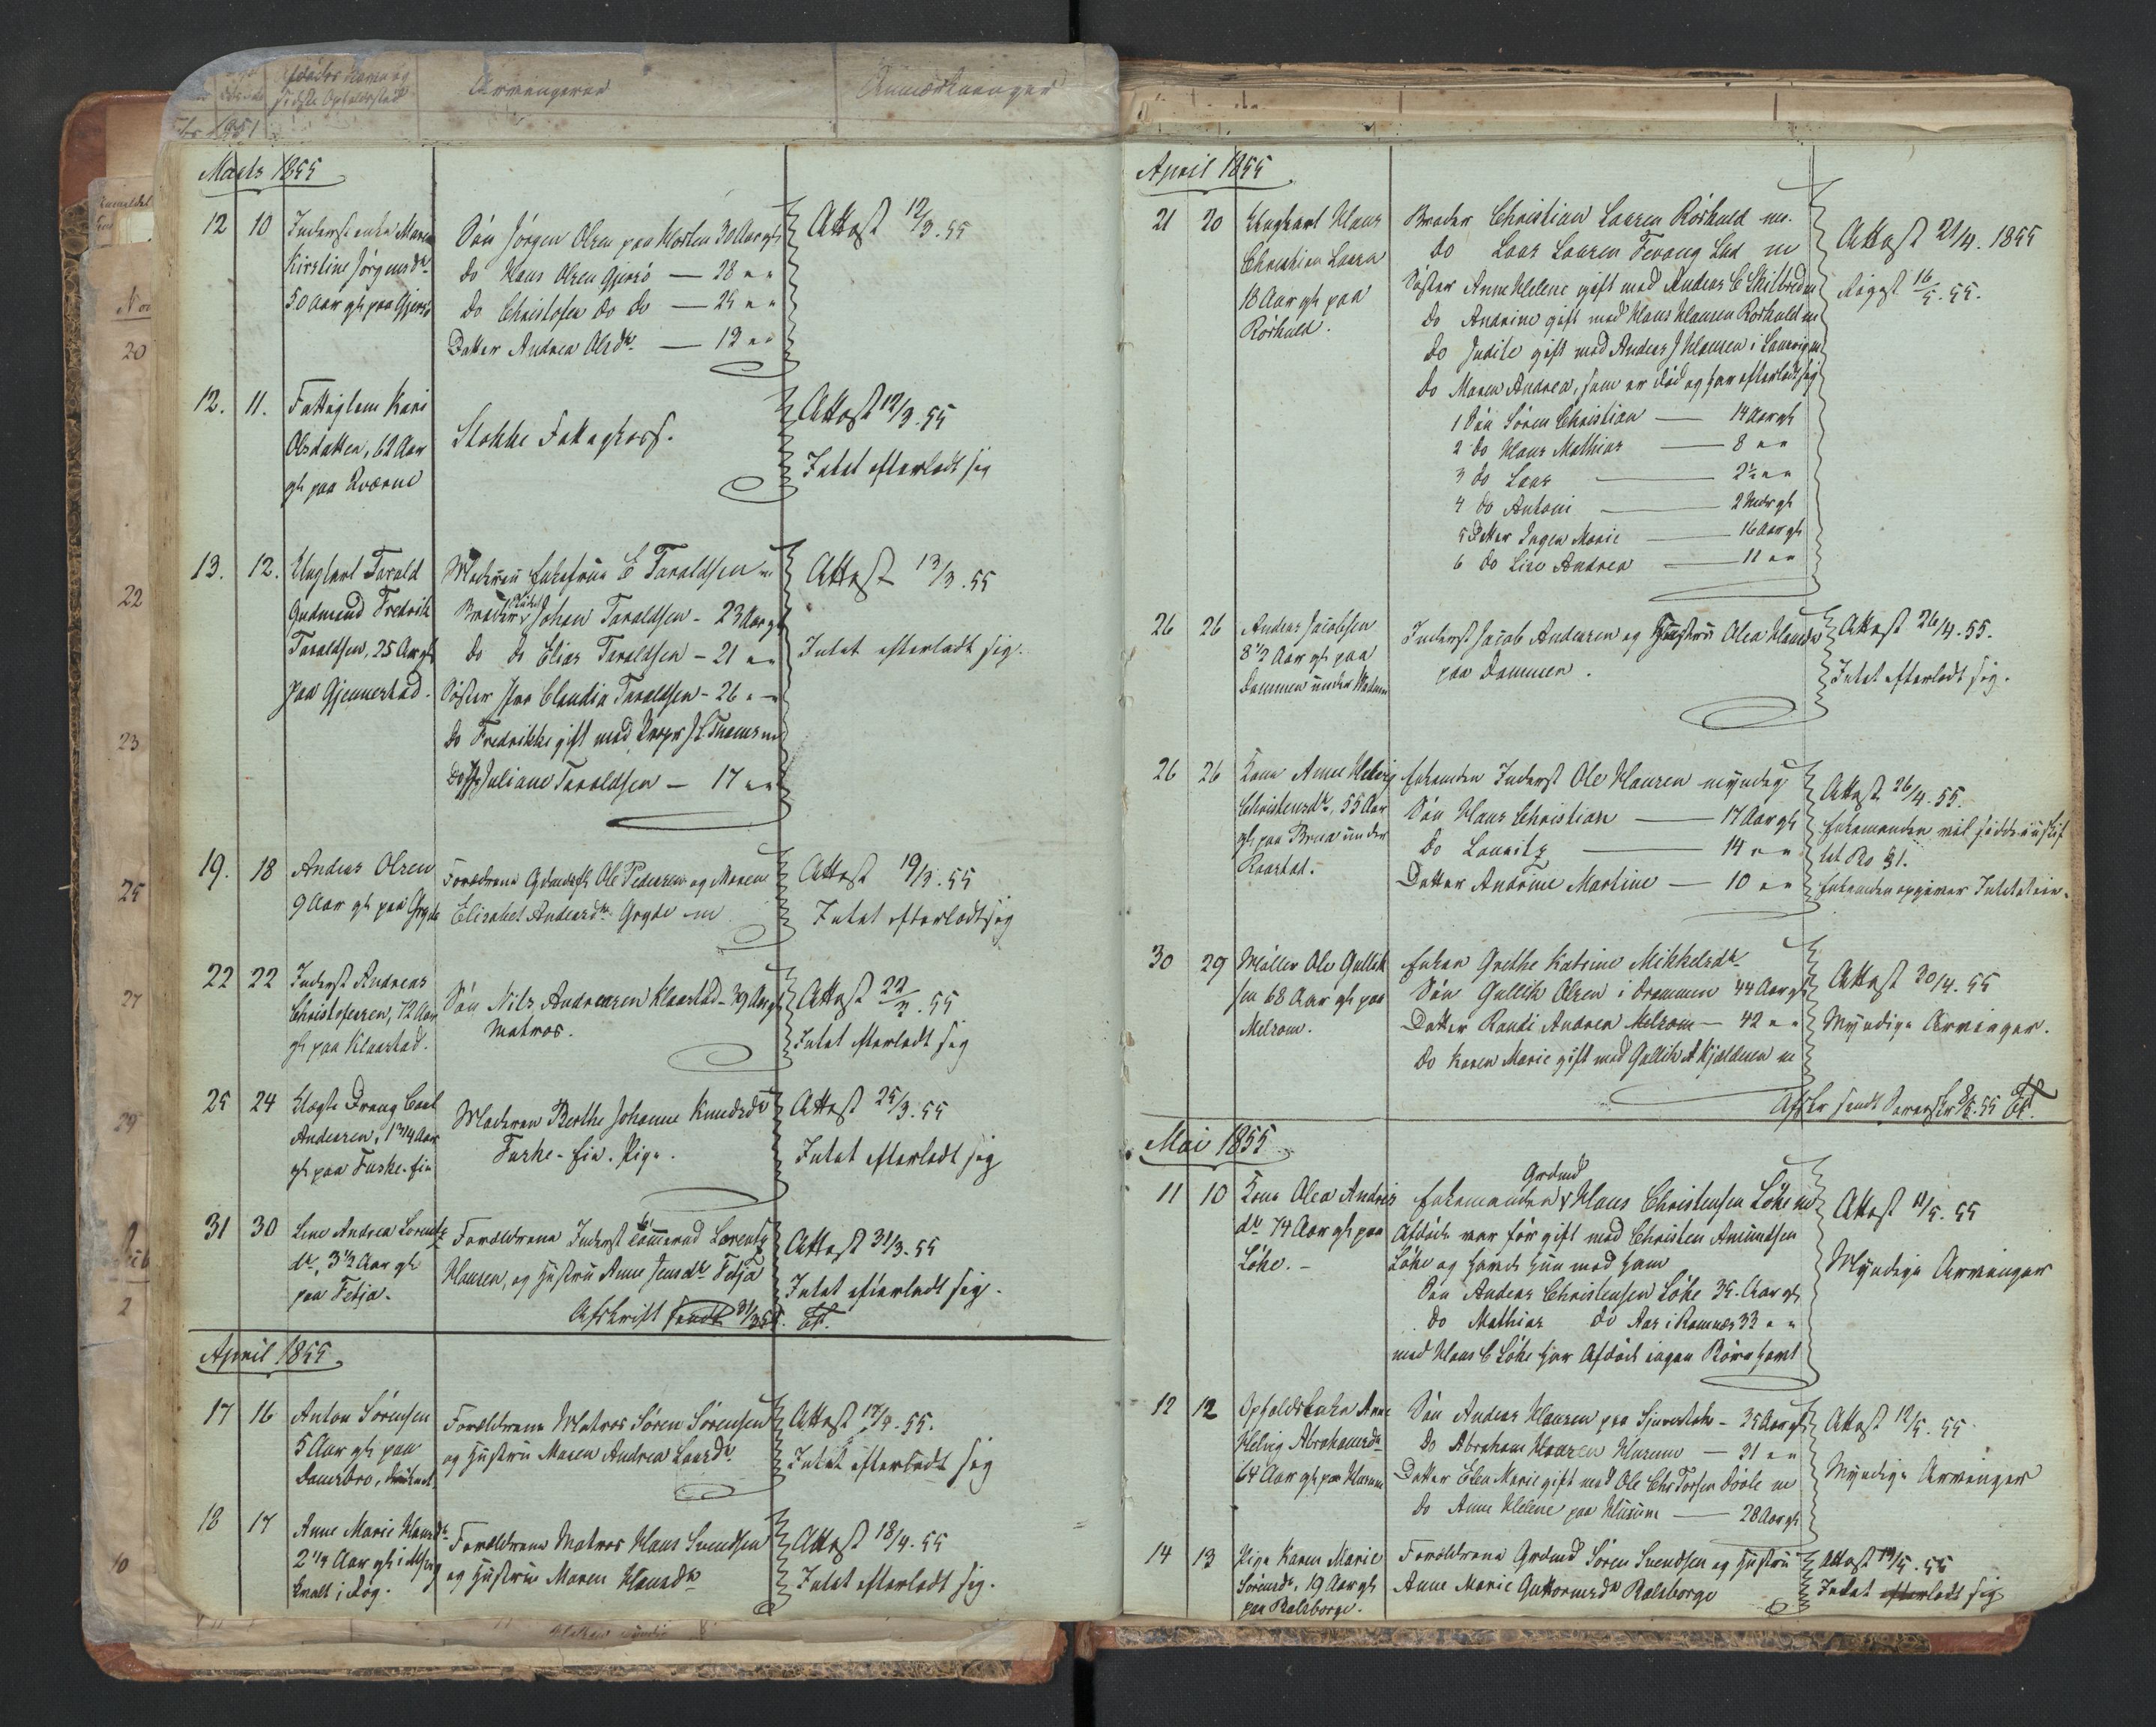 Afdødes Navn og
sidste Opholdssted
Arvingerne
Anmærkninger
1851
Marts 1855
12 10 Inderst enke Maren
Kirstine Jörgensdr
50 Aar gl paa Gjersö
Sön Jörgen Olsen paa Klosten 30 Aar gl
do Hans Olsen Gjersö — 28 " "
do Christofer do do — 24 " "
Datter Andrea Olsdr — 19 " "
Attest 12/3.55
12. 11. Fattiglem Kari
Olsdatter, 62 Aar
gl paa Qværne
Stokke Fattigkass.
Attest 12/3.55
Intet efterladt sig
13. 12. Ungkarl Tarald
Gudmund Fredrik
Taraldsen, 25 Aar gl
paa Gjennestad.
Moderen Enkefrue E Taraldsen m
Broder Johan Taraldsen - 23 Aar gl
do do Elias Taraldsen - 21 " "
Söster Jfr Claudia Taraldsen - 26 " "
do Fredrikke gift med J C Thomsen
do Jfr Juliane Taraldsen — 17 " "
Attest 13/3.55
Intet efterladt sig.
19. 18 Andreas Olsen
9 Aar gl paa Gryde
Forældrene Gdmdsf Ole Pedersen og Maren
Elisabet Andersdr Gryde m
Attest 19/3.55
Intet efterladt sig
22 22 Inderst Andreas
Christofersen, 72 Aar
gl paa Klaastad.
Sön Nils Andreasen Klaastad - 39 Aar gl
Matros.
Attest 22/3.55
Intet efterladt sig
25 24 Uægte Dreng Carl
Andersen, 1 3/4 Aar
gl paa Fuske-
Moderen Berthe Johanne Knudsdr
Fuske- Pige.
Attest 25/3.55
Intet efterladt sig
31 30 Line Andrea Lorentz
dr, 3 1/2 Aar gl
paa Fetja.
Forældrene Inderst Lorentz
Hansen, og Hustru Anne Jensdr Fetja
Attest 31/3.55
Intet efterladt sig.
Afskrift sendt 31/3 55.
April 1855
17 16 Anton Sörensen
5 Aar gl paa
Damsbro, druknet.
Forældrene Matros Sören Sörensen
og Hustru Maren Andrea Laursdr
Attest 17/4.55.
Intet efterladt sig
18 17 Anne Marie Hansdr
2 1/4 Aar gl i
qvalt i Rög.
Forældrene Matros Hans Svendsen
og Hustrue Maren Hansdr
Attest 18/4.55
Intet efterladt sig.
April 1855
21 20 Ungkarl Hans
Christian Larsen
18 Aar gl paa
Rörkuld.
Broder Christian Larsen Rörkuld m.
do Lars Larsen Fevang Eed m
Söster Anne Helene gift med Anders C Skilbred m
do Andrine gift med Hans Hansen Rörkuld m
do Judite gift med Anders J Hansen i Laurvig m
do Maren Andrea, som er död og har efterladt sig
1 Sön Sören Christian — 14 Aar gl
2 do Hans Mathias — 8 " "
3 do Lars — 2 1/2 " "
4 do Antoni — 2 Uger gl
5 Datter Ingen Marie — 16 Aar gl
6 do Lise Andrea — 11 " "
Attest 21/4. 1855
Regst 16/5.55.
26 26 Anders Jacobsen
8 1/2 Aar gl paa
Dammen under
Inderst Jacob Andersen og Hustru Olea Hansdr
paa Dammen.
Attest 26/4.55.
Intet efterladt sig.
26 26 Kone Anne Helvig
Christensdr, 55 Aar
gl paa Brua under
Raastad.
Enkemanden Inderst Ole Hansen myndig
Sön Hans Christian — 17 Aar gl
do Lauritz — 14 " "
Datter Andrine Martine — 10 " "
Attest 26/4.55.
Enkemanden vil sidde i uskif
tet Bo § 1.
Enkemanden opgiver Intet
30 29 Möller Ole Gullik
sen 68 Aar gl paa
Melsom.
Enken Grethe Katrine Mikkelsdr
Sön Gullik Olsen i Drammen 44 Aar gl
Datter Randi Andrea Melsom — 42 " "
do Karen Marie gift med Gullik A Kjældsen m
Attest 30/4.55
Myndige Arvinger.
Afskr sendt 2/5.55
Mai 1855
11 10 Kone Olea Anders
dr 74 Aar gl paa
Löke.-
Grdmd
Enkemanden Hans Christensen Löke m
Afdöde var för gift med Christen Amundsen
Löke og havde hun med ham
Sön Anders Christensen Löke 35. Aar gl
do Mathias do Aas i Ramnæs 33 " "
med Hans C Löke har Afdöde ingen Börn havt
Attest 11/5.55
Myndige Arvinger
12 12 Opholdsenke Anne
Helvig Abrahamsdr
64 Aar gl paa Husum
Sön Anders Hansen paa — 35 Aar gl
do Abraham Hansen Husum — 31 " "
Datter Elen Marie gift med Ole Chr m
do Anne Helene paa Husum — 28 Aar gl
Attest 12/5.55
Myndige Arvinger
14 13 Pige Karen Marie
Sörensdr. 19 Aar gl
paa Ralsborge.
Forældrene Grdmd Sören Svendsen og Hustru
Anne Marie Guttormsdr Ralsborge
Attest 14/5.55
Intet efterladt sig